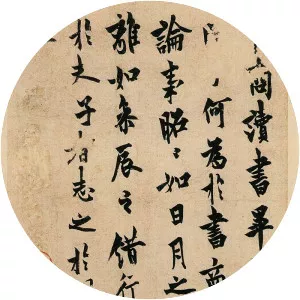 商讀書畢
何為於書商
論事昭〻如日月之
離如參辰之錯行
於夫子者志之於